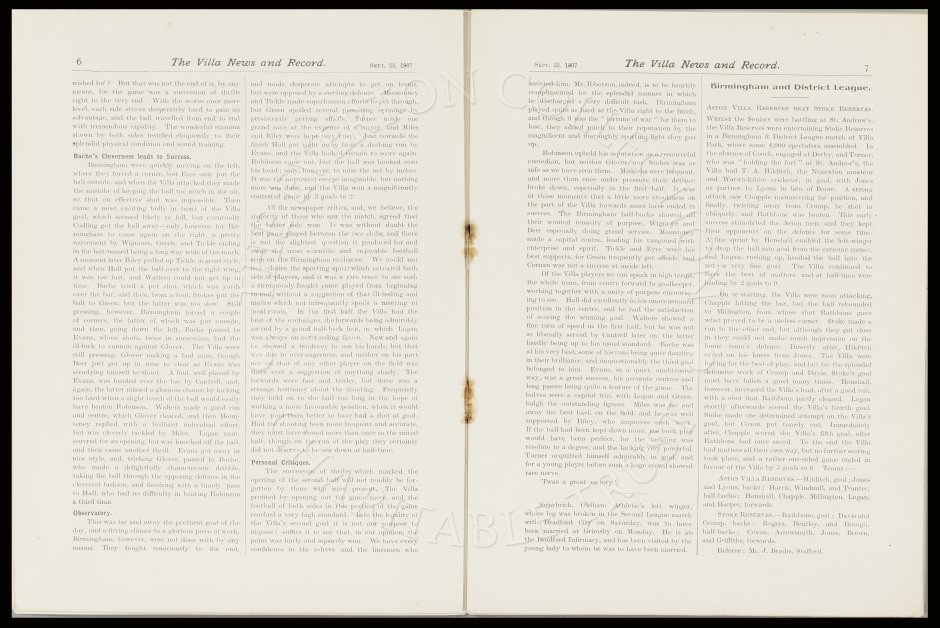 6
The Villa News and Record.
SEPT. 28, 1907
wished for? But that was not the end of it, by any
means, for the game was a succession of thrills
right to the very end. With the scores once more
level, each side strove desperately hard to gain an
advantage, and the ball travelled from end to end
with tremendous rapidity. The wonderful stamina
shown by both sides testified eloquently to their
splendid physical condition and sound training.
Bache's Cleverness leads to Success.
Birmingham were quickly moving on the left,
where they forced a corner, but Eyre only put the
ball outside, and when the Villa attacked they made
the mistake of keeping the ball too much in the air,
so that an effective shot was impossible. Then
came a most exciting bully in front of the Villa
goal, which seemed likely to fall, but eventually
Codling got the ball away—only, however, for Bir-
mingham to come again on the right, a pretty
movement by Wigmore, Green, and Tickle ending
in the last-named being a long way wide of the mark.
A moment later Riley pulled up Tickle in great style,
and when Hall put the ball over to the right wing,
it was too fast, and Walters could not get up in
time. Bache tried a pot shot, which was yards
over the bar, and then, from a foul, Stokes put the
ball to Green, but the latter was too slow. Still
pressing, however, Birmingham forced a couple
of corners, the latter of which was put outside,
and then, going down the left, Bache passed to
Evans, whose shots, twice in succession, had the
ill-luck to cannon against Glover. The Villa were
still pressing, Glover making a bad miss, though
Beer just got up in time to clear as Evans was
steadying himself to shoot. A foul, well placed by
Evans, was headed over the bar by Cantrell, and,
again, the latter missed a glorious chance by kicking
too hard when a slight touch of the ball would easily
have beaten Robinson. Walters made a good run
and centre, which Glover cleared, and then Moun-
teney replied with a brilliant individual effort,
but was cleverly tackled by Miles. Logan man-
œuvred for an opening, but was knocked off the ball,
and then came another thrill. Evans got away in
nice style, and, tricking Glover, passed to Bache,
who made a delightfully characteristic dribble,
taking the ball through the opposing defence in the
cleverest fashion, and finishing with a timely pass
to Hall, who had no difficulty in beating Robinson
a third time.
Observatory.
This was far and away the prettiest goal of the
day, and a fitting climax to a glorious piece of work.
Birmingham, however, were not done with by any
means. They fought tenaciously to the end,
and made desperate attempts to get on terms,
but were opposed by a sterling defence. Mounteney
and Tickle made superhuman efforts to get through,
but Green spoiled several promising openings by
persistently getting offside. Turner made one
grand save at the expense of a corner, and Miles
and Riley were kept very busy. Just towards the
finish Hall got right away from a dashing run by
Evans, and the Villa looked certain to score again.
Robinson came out, but the ball was hooked over
his head; only, however, to miss the net by inches.
It was the narrowest escape imaginable, but nothing
more was done, and the Villa won a magnificently
contested game by 3 goals to 2.
All the newspaper critics, and, we believe, the
majority of those who saw the match, agreed that
the better side won. It was without doubt the
best game played between the two clubs, and there
is not the slightest question it produced for and
away the most scientific and enjoyable football
seen on the Birmingham enclosure. We could not
but admire the sporting spirit which actuated both
sets of players, and it was a rare treat to see such
a strenuously-fought game played from beginning
to end without a suggestion of that ill-feeling and
malice which not infrequently spoils a meeting of
local rivals. In the first half the Villa had the
best of the exchanges, the forwards being admirably
served by a grand half-back line, in which Logan
was always an outstanding figure. Now and again
he showed a tendency to use his hands, but that
was due to over-eagerness, and neither on his part
nor on that of any other player on the field was
there ever a suggestion of anything shady. The
forwards were fast and tricky, but there was a
strange hesitancy about the shooting. Frequently
they held on to the ball too long in the hope of
working a more favourable position, when it would
have paid them better to have had a shot at goal.
Had the shooting been more frequent and accurate,
they must have scored more than once in the initial
half, though on the run of the play they certainly
did not deserve to be one down at half-time.
Personal Critiques.
The succession of thrills which marked the
opening of the second half will not readily be for-
gotten by those who were present. The Villa
profited by opening out the game more, and the
football of both sides in this portion of the game
reached a very high standard. Into the legality of
the Villa's second goal it is not our purpose to
inquire; suffice it to say that, in our opinion, the
point was fairly and squarely won. We have every
confidence in the referee and the linesmen who
SEPT. 28, 1907
The Villa News and Record.
7
assisted him. Mr. Ibbotson, indeed, is to be heartily
complimented for the splendid manner in which
he discharged a very difficult task. Birmingham
played quite as hard as the Villa right to the finish,
and though it was the "fortune of war" for them to
lose, they added much to their reputation by the
magnificent and thoroughly sporting fight they put
up.
Robinson upheld his reputation as a resourceful
custodian, but neither Glover nor Stokes was as
safe as we have seen them. Mistakes were frequent,
and more than once under pressure their defence
broke down, especially in the first-half. It was
at those moments that a little more steadiness on
the part of the Villa forwards must have ended in
success. The Birmingham half-backs showed all
their wonted tenacity of purpose, Wigmore and
Beer especially doing grand service. Mounteney
made a capital centre, leading his vanguard with
enterprise and spirit. Tickle and Eyre were his
best supports, for Green frequently got offside, and
Corman was not a success at inside left.
Of the Villa players we can speak in high terms,
the whole team, from centre forward to goalkeeper,
working together with a unity of purpose encourag-
ing to see. Hall did excellently in his unaccustomed
position in the centre, and he had the satisfaction
of scoring the winning goal. Walters showed a
fine turn of speed in the first half, but he was not
so liberally served by Cantrell later on, the latter
hardly being up to his usual standard. Bache was
at his very best, some of his runs being quite dazzling
in their brilliance, and unquestionably the third goal
belonged to him. Evans, in a quiet, unobtrusive
way, was a great success, his accurate centres and
long passes being quite a feature of the game. The
halves were a capital trio, with Logan and Green-
halgh the outstanding figures. Miles was far and
away the best back on the field, and he was well
supported by Riley, who improves each week.
If the ball had been kept down more, the back play
would have been perfect, for the tackling was
resolute to a degree, and the kicking very powerful.
Turner acquitted himself admirably in goal, and
for a young player before such a huge crowd showed
rare nerve.
'Twas a great victory!
Swarbrick, Oldham Athletic's left winger,
whose leg was broken in the Second League match
with Bradford City on Saturday, was to have
been married at Grimsby on Monday. He is at
the Bradford Infirmary, and has been visited by the
young lady to whom he was to have been married.
Birmingham and District League.
ASTON VILLA RESERVES BEAT STOKE RESERVES.
WHILST the Seniors were battling at St. Andrew's,
the Villa Reserves were entertaining Stoke Reserves
in a Birmingham & District League match at Villa
Park, where some 4,000 spectators assembled. In
the absence of Cooch, engaged at Derby, and Turner,
who was "holding the fort" at St. Andrew's, the
Villa had T. A. Hilditch, the Nuneaton amateur
and Warwickshire cricketer, in goal, with Jones
as partner to Lyons in lieu of Beam. A strong
attack saw Chapple manœuvring for position, and
finally, twisting away from Crump, he shot in
obliquely, and Rathbone was beaten. This early
success stimulated the Aston men, and they kept
their opponents on the defence for some time.
A fine sprint by Henshall enabled the left-winger
to drop the ball into goal from the extreme corner,
and Logan, rushing up, headed the ball into the
net—a very fine goal. The Villa continued to
have the best of matters, and at half-time were
leading by 2 goals to 0.
On re-starting, the Villa were soon attacking,
Chapple hitting the bar, but the ball rebounded
to Millington, from whose shot Rathbone gave
what proved to be a useless corner. Stoke made a
run to the other end, but although they got close
in they could not make much impression on the
home team's defence. Directly after, Hilditch
saved on his knees from Jones. The Villa were
having far the best of play, and but for the splendid
defensive work of Crump and Davis, Stoke's goal
must have fallen a good many times. Henshall,
however, increased the Villa's lead, after a good run,
with a shot that Rathbone partly cleared. Logan
shortly afterwards scored the Villa's fourth goal.
Stoke made one determined attempt on the Villa's
goal, but Coxon put tamely out. Immediately
after, Chapple scored the Villa's fifth goal, after
Rathbone had once saved. To the end the Villa
had matters all their own way, but no further scoring
took place, and a rather one-sided game ended in
favour of the Villa by 5 goals to 0. Teams:—
ASTON VILLA RESERVES.—Hilditch, goal; Jones
and Lyons, backs; Harris, Windmill, and Tranter,
half-backs; Henshall, Chapple, Millington, Logan,
and Harper, forwards.
STOKE RESERVES.—Rathbone, goal; Davis and
Crump, backs; Rogers, Bentley, and Brough,
half-backs; Coxon, Arrowsmith, Jones, Brown,
and Griffiths, forwards.
Referee: Mr. J. Brodie, Stafford.